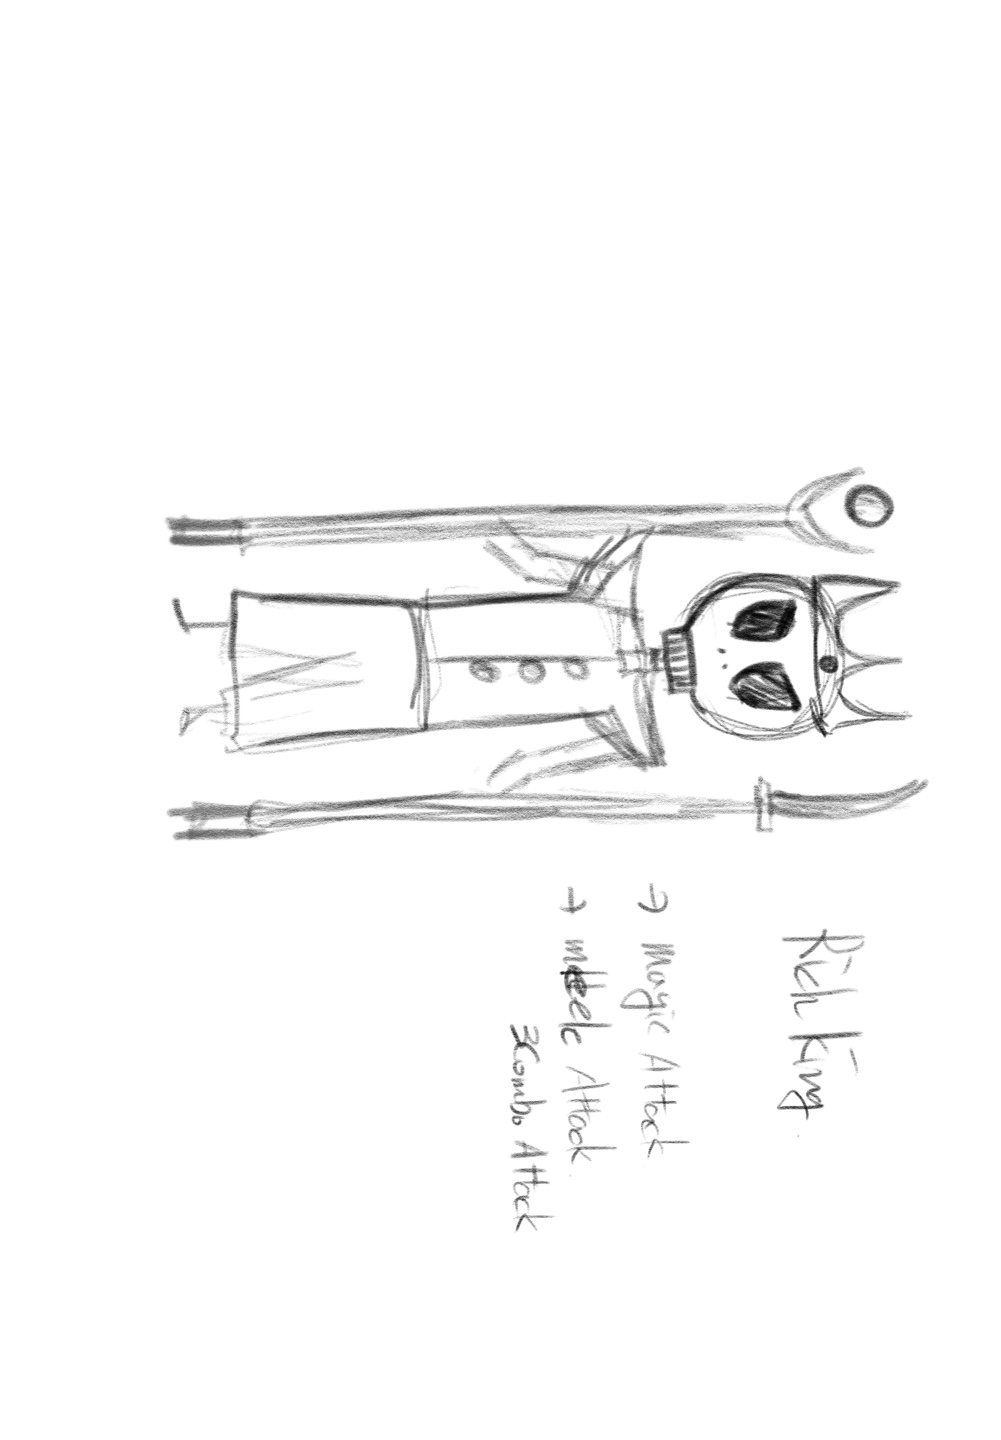 Rich King
→ Magic Attack
→ melele Attack
3Combo Attack